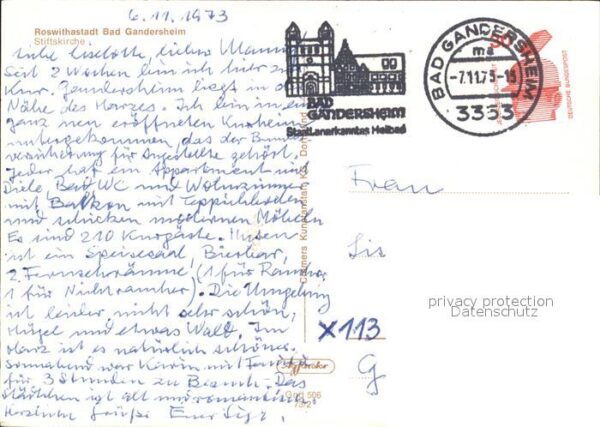 6.11.1973
Roswithastadt Bad Gandersheim
Stiftskirche
Liebe Liselotte, lieber Mann
Seit 2 Wochen bin ich hier zur
Kur. Gandersheim liegt in d
Nähe des Harzes. Ich bin in ein
ganz neu eröffneten Kurheim
untergekommen, das der Bundes
versicherung für Angestellte gehört.
Jeder hat ein Appartement mit
Diele, Bad, WC und Wohnzimmer
mit Balkon mit Teppichboden
und schicken modernen Möbeln
Es sind 210 Kurgäste. Unten
ist ein Speisesaal, Bierbar,
2 Fernsehräume, (1 für Raucher
1 für Nichtraucher). Die Umgebung
ist leider nicht sehr schön,
Hügel und etwas Wald. Im
Harz ist es natürlich schöner.
Sonnabend war Karin mit Familie
für 3 Stunden zu Besuch. Das
Städtchen ist alt und romantisch.
Herzliche Grüße
BAD
GANDERSHEIM
Staatl. anerkanntes Heilbad
BAD GANDERSHEIM
ma
-7.11.73-18
3353
DEUTSCHE BUNDESPOST
Cramers Kunstanstalt KG, Dortmund
Frau
Lis
privacy protection
Datenschutz
X113
G
506